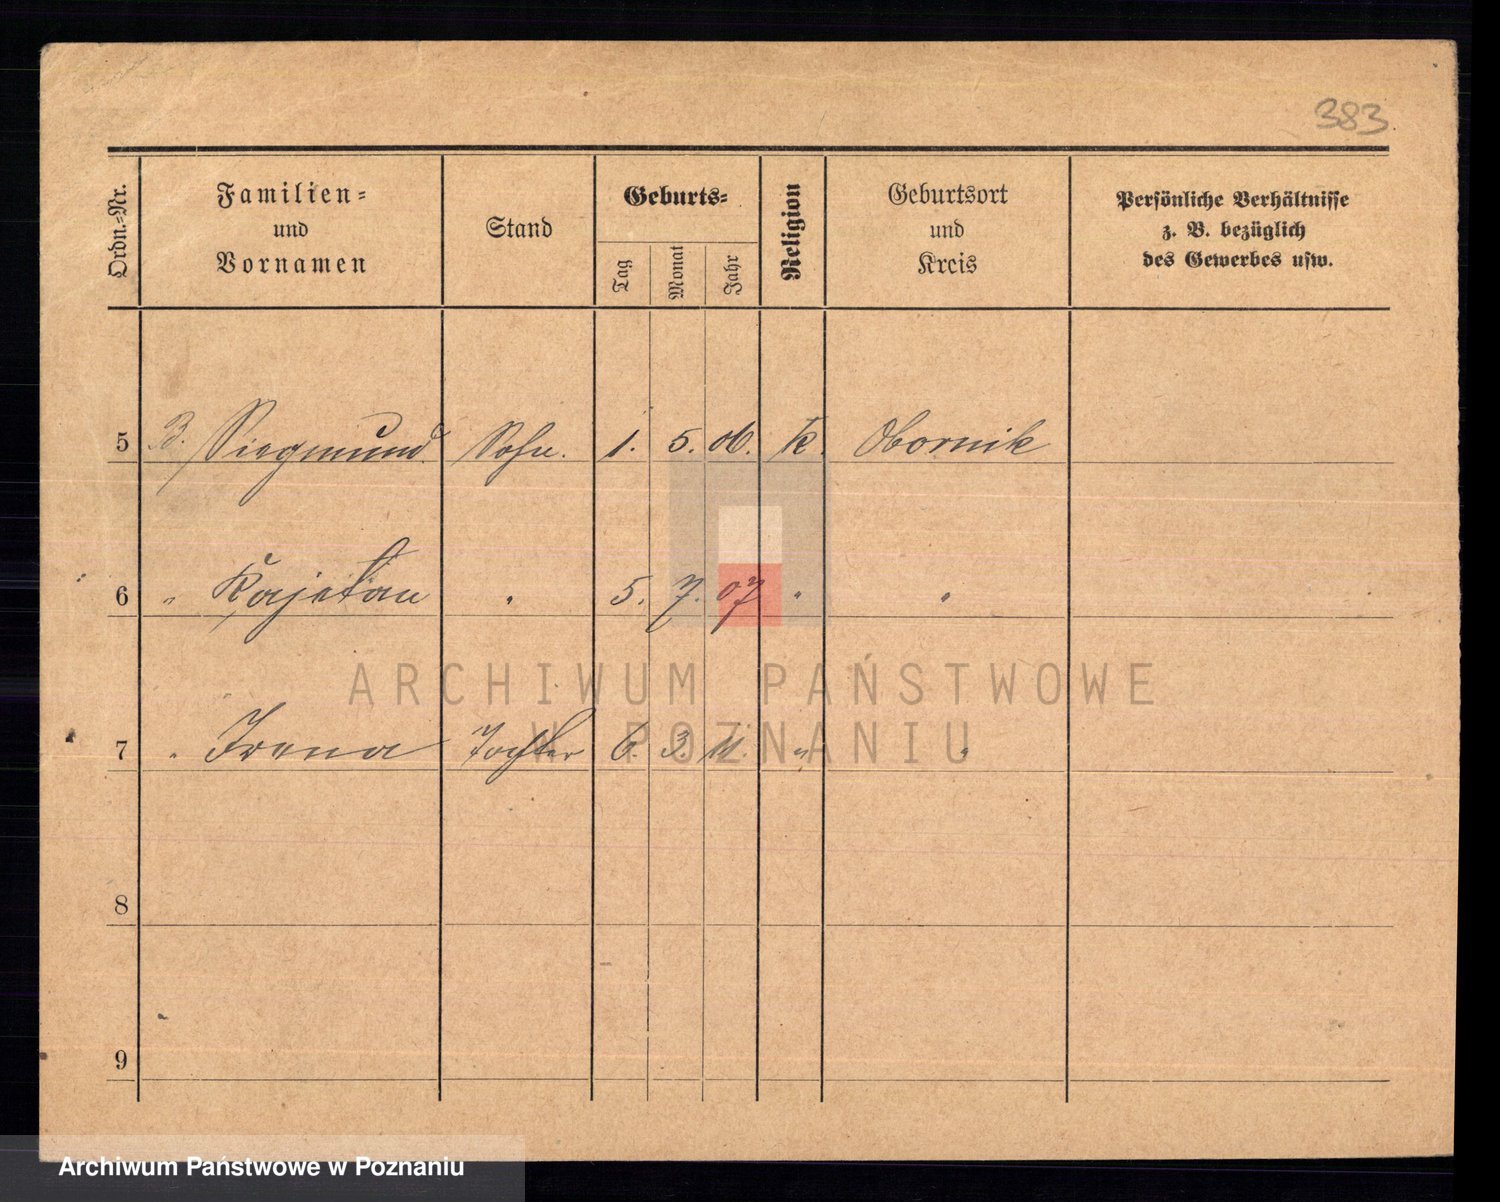 383
Ordn.-Nr. Familien- und Vornamen Stand Geburts- Tag Monat Jahr Religion Geburtsort und Kreis Persönliche Verhältnisse z. B. bezüglich des Gewerbes usw.
5 B. Siegmund Sohn. 1. 5. 06. k. Obornik
6 " Kajetan " 5. 7. 07 " "
7 " Irena Tochter 6. 3. 11. " "
8
9
ARCHIWUM PAŃSTWOWE
W POZNANIU
Archiwum Państwowe w Poznaniu